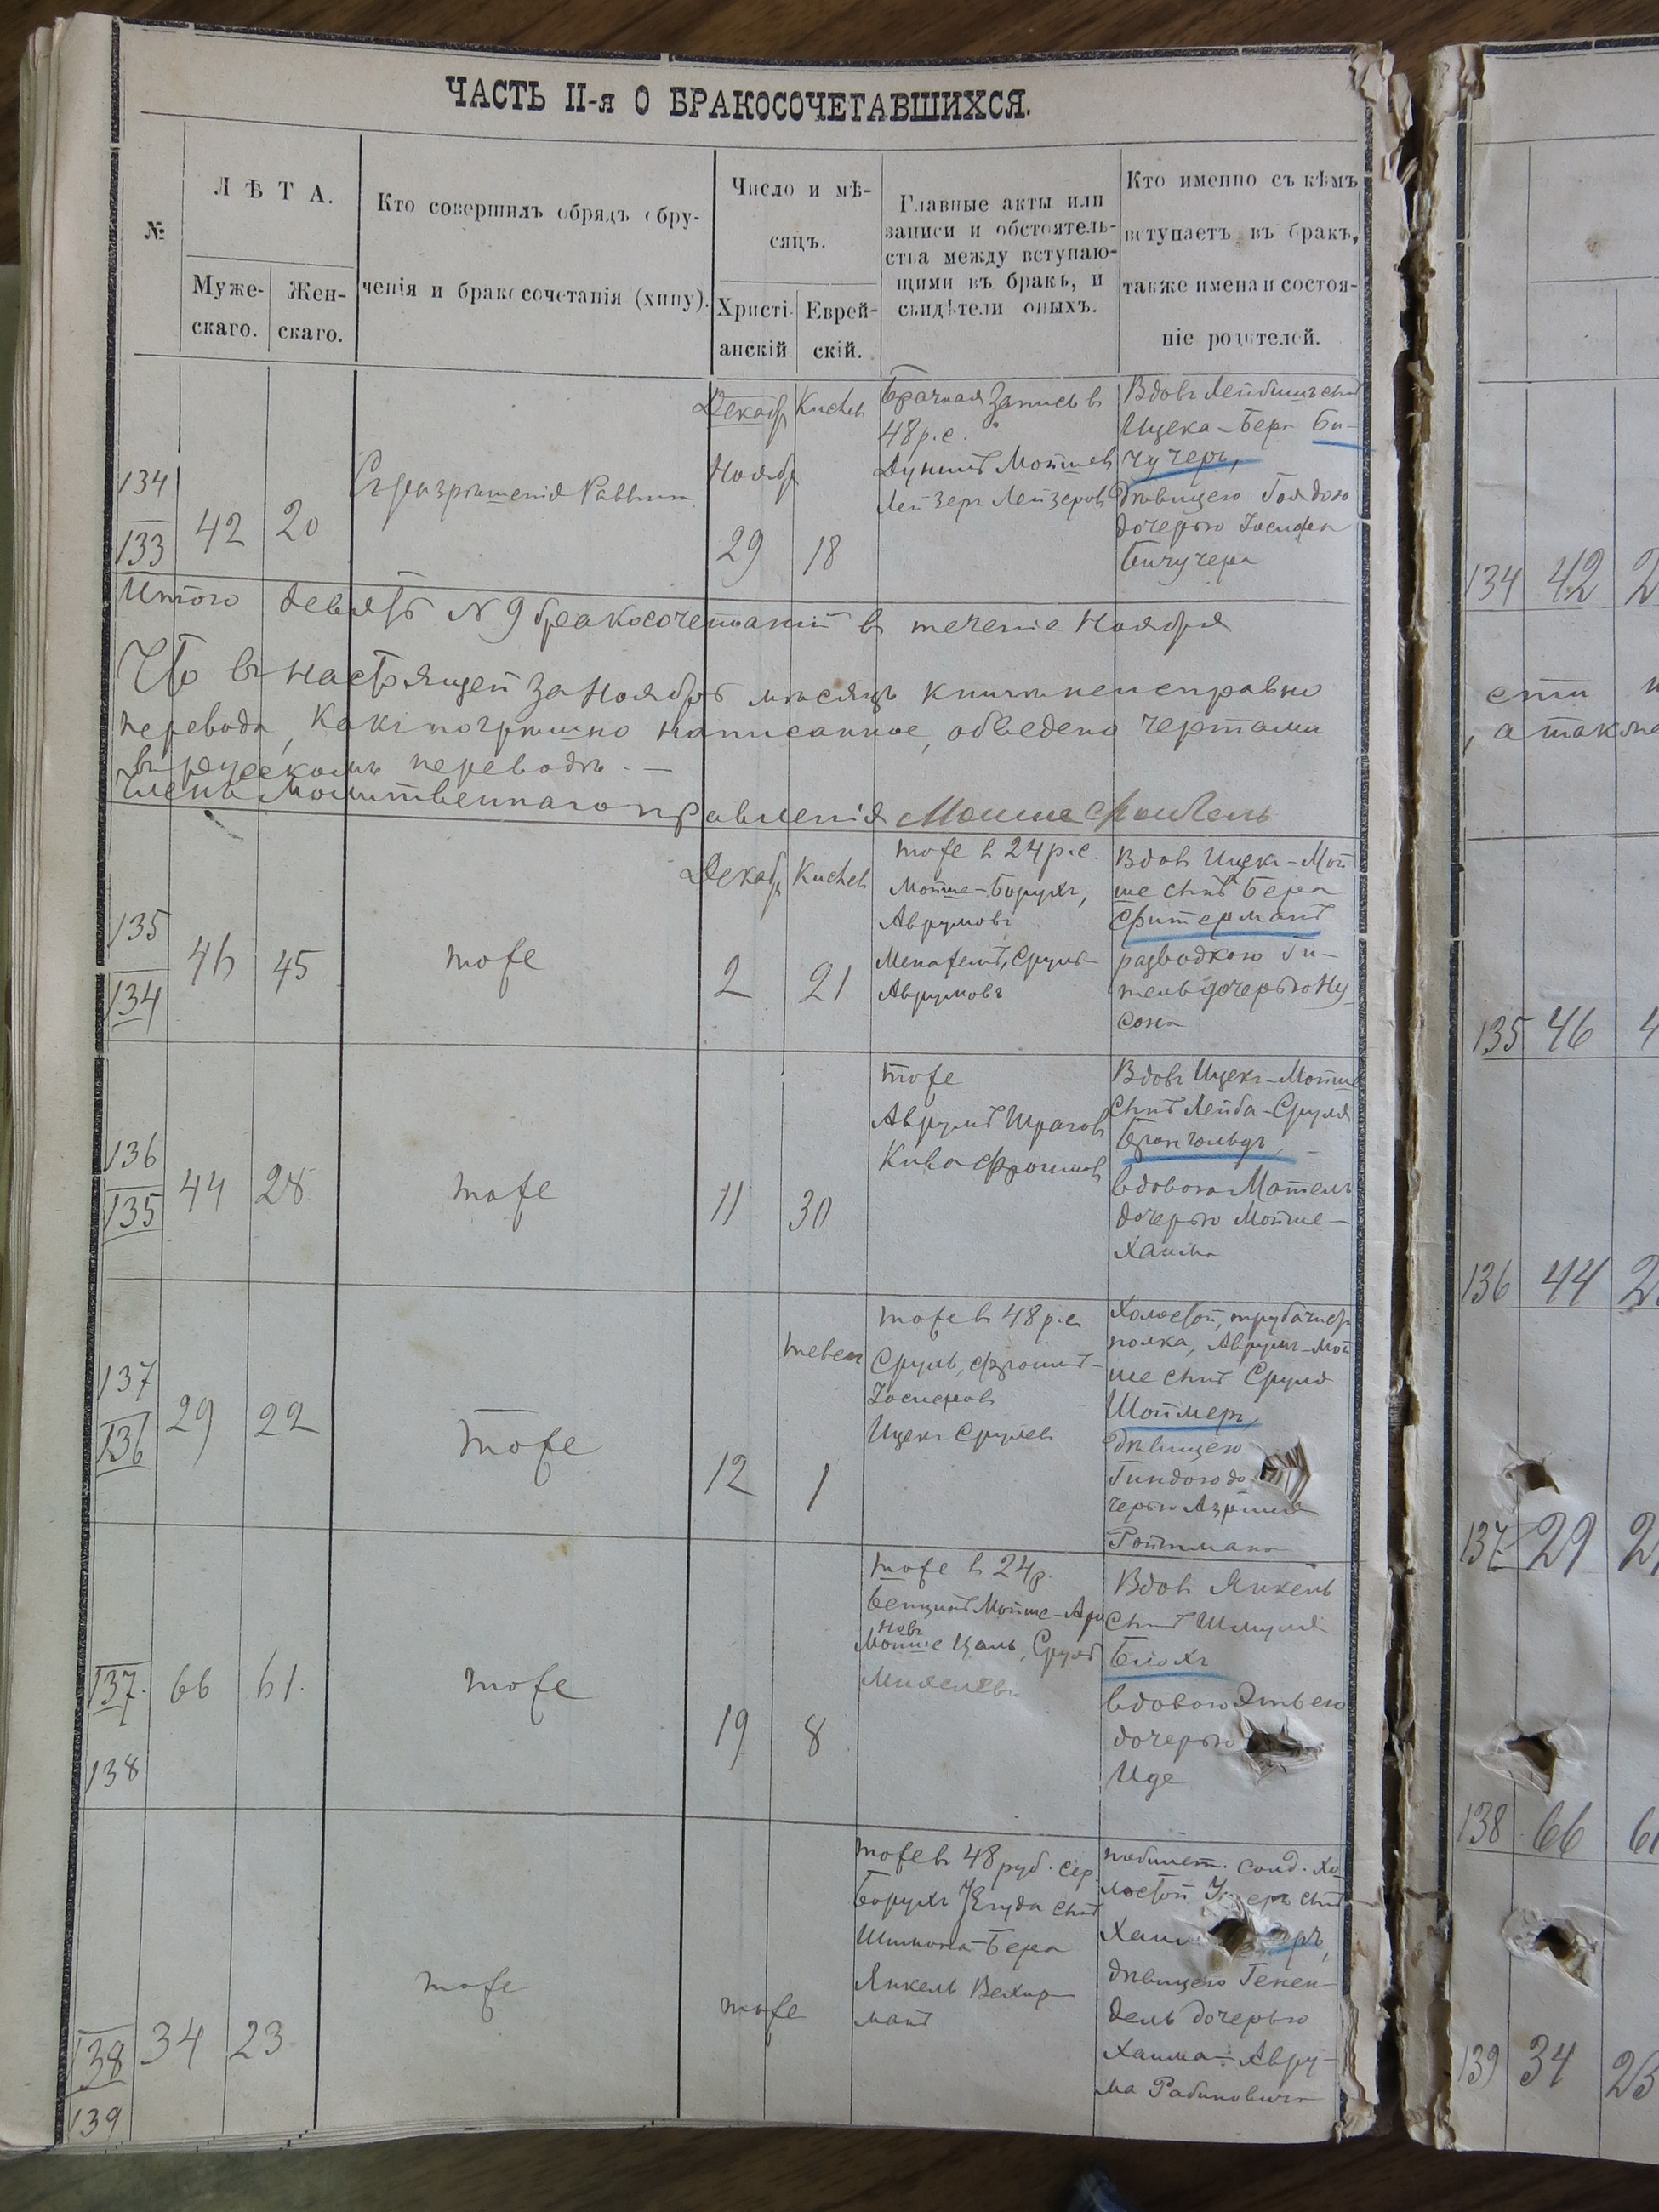 ЧАСТЬ II-я О БРАКОСОЧЕТАВШИХСЯ.
№
ЛѢТА.
Муже-
скаго.
Жен-
скаго.
Кто совершилъ обрядъ обру-
ченія и бракосочетанія (хипу).
Число и мѣ-
сяцъ.
Христі-
анскій
Еврей-
скій.
Главные акты или
записи и обстоятель-
ства между вступаю-
щими въ бракъ, и
свидѣтели оныхъ.
Кто именно съ кѣмъ
вступаетъ въ бракъ,
также имена и состоя-
ніе родителей.
134
133
42
20
Съ разрѣшенія Раввина
Декабр
Ноябр
29
Кислев
18
Брачная запись в
48 р.с.
Мотшев
Лейзеръ Лейзеров
Вдовъ Лейбишъ сынъ
Ицека-Бера Би-
чучеръ,
дѣвицею Голдою
дочерью Iосифа
Бичучера
Итого девять N 9 бракосочетаній въ теченіе Ноября
Что въ настоящей за Ноябрь мѣсяцъ книги неисправно
перевода, какъ погрѣшно написанное, обведено чертами
въ русскомъ переводѣ. —
Членъ Молитвеннаго правленія Мошше
135
134
46
45
тоже
Декабр
2
Кислев
21
тоже в 24 р.с.
Мотше-Борухъ,
Аврумовъ
Сруль-
Аврумовъ
Вдовъ Ицекъ-Мот
ше сынъ Бера
Фитерманъ
разводкою Ги-
тель дочерью Ну-
сона
136
135
44
28
тоже
11
30
тоже
Аврумъ Шрагов
Кива Фроимов
Вдовъ Ицекъ-Мотше
сынъ Лейба-Сруля
вдовою Мотель
дочерью Мотше-
Хаима
137
136
29
22
тоже
12
тевес
1
тоже в 48 р.с.
Сруль, Фроимъ-
Iосифовъ
Ицекъ Срулев
Холостой,
полка, Аврумъ-Мот
ше сынъ Сруля
Шоймеръ,
дѣвицею
Гиндою до
черью
Ройтмана
137.
138
66
61.
тоже
19
8
тоже в 24 р.
Бенционъ Мотше-Аро
новъ
Мотше Цаль, Сруль
Вдовъ Янкель
сынъ Шмуля
Блохъ
вдовою Этьею
дочерью
Иде
138
139
34
23
тоже
тоже
тоже в 48 руб. сер.
Борухъ Егуда сынъ
Шимона-Бера
Янкель
манъ
билет. солд. хо
лостой сынъ
Хаим
дѣвицею Генен-
дель дочерью
Хаима-Авру-
ма Рабиновича
134 42 2
сти
, а также
135 46 4
136 44 2
137 29 2
138 66 6
139 34 23